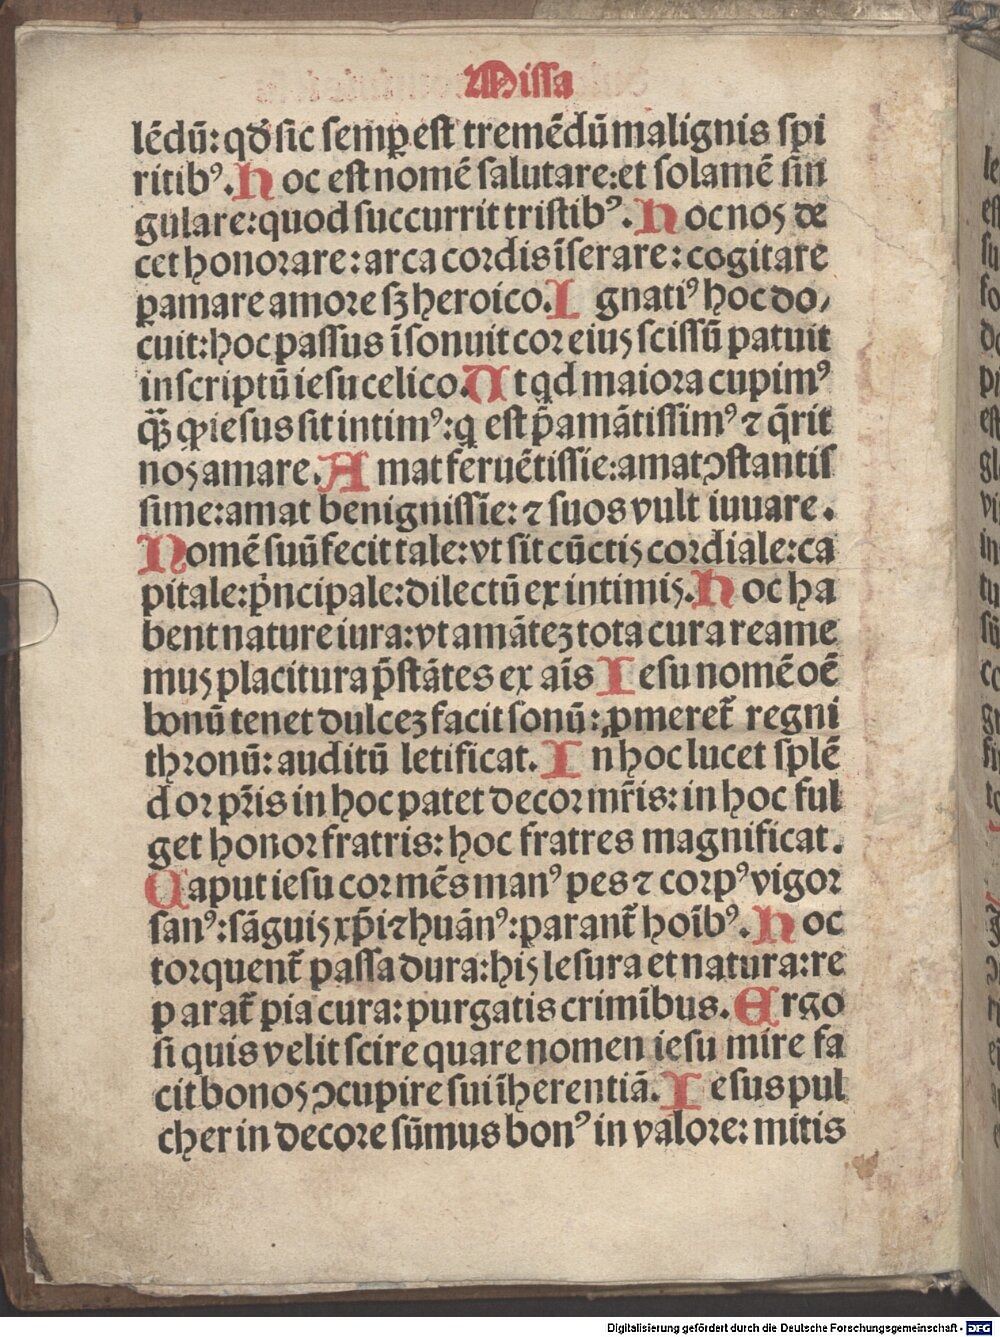 Missa
lēdū: qđ sic semꝑ est tremēdū malignis spi
ritibꝰ. Hoc est nomē salutare: et solamē sin
gulare: quod succurrit tristibꝰ. Hoc noꝫ de
cet honorare: arca cordis īserare: cogitare
ꝑamare amore sꝫ heroico. Ignatiꝰ hoc do,
cuit: hoc passus īsonuit cor eiuꝫ scissū patuit
inscriptū iesu celico. Ut qͥd maiora cupimꝰ
q̄ꝫ ꝙ iesus sit intimꝰ: qͥ est p̄amātissimꝰ ⁊ q̄rit
noꝫ amare. Amat feruētissīe: amat ꝯstantis
sime: amat benignissīe: ⁊ suos vult iuuare.
Nomē suū fecit tale: vt sit cūctiꝫ cordiale: ca
pitale: pͥncipale: dilectū ex intimiꝫ. Hoc ha
bent nature iura: vt amāteꝫ tota cura reame
muꝫ placitura p̄stātes ex aīs Iesu nomē oē
bonū tenet dulceꝫ facit sonū: ꝓmeret̄ regni
thronū: auditū letificat. In hoc lucet splē
dor pr̄is in hoc patet decor mr̄is: in hoc ful
get honor fratris: hoc fratres magnificat.
Caput iesu cor mēs manꝰ pes ⁊ corpꝰ vigor
sanꝰ: sāguiꝫ xp̄i ⁊ huānꝰ: parant̄ hoībꝰ. Hoc
torquent̄ passa dura: hiꝫ lesura et natura: re
parat̄ pia cura: purgatis crimībus. Ergo
si quis velit scire quare nomen iesu mire fa
cit bonoꝫ ꝯcupire sui īherentiā. Iesus pul
cher in decore sūmus bonꝰ in valore: mitis
Digitalisierung gefördert durch die Deutsche Forschungsgemeinschaft - DFG